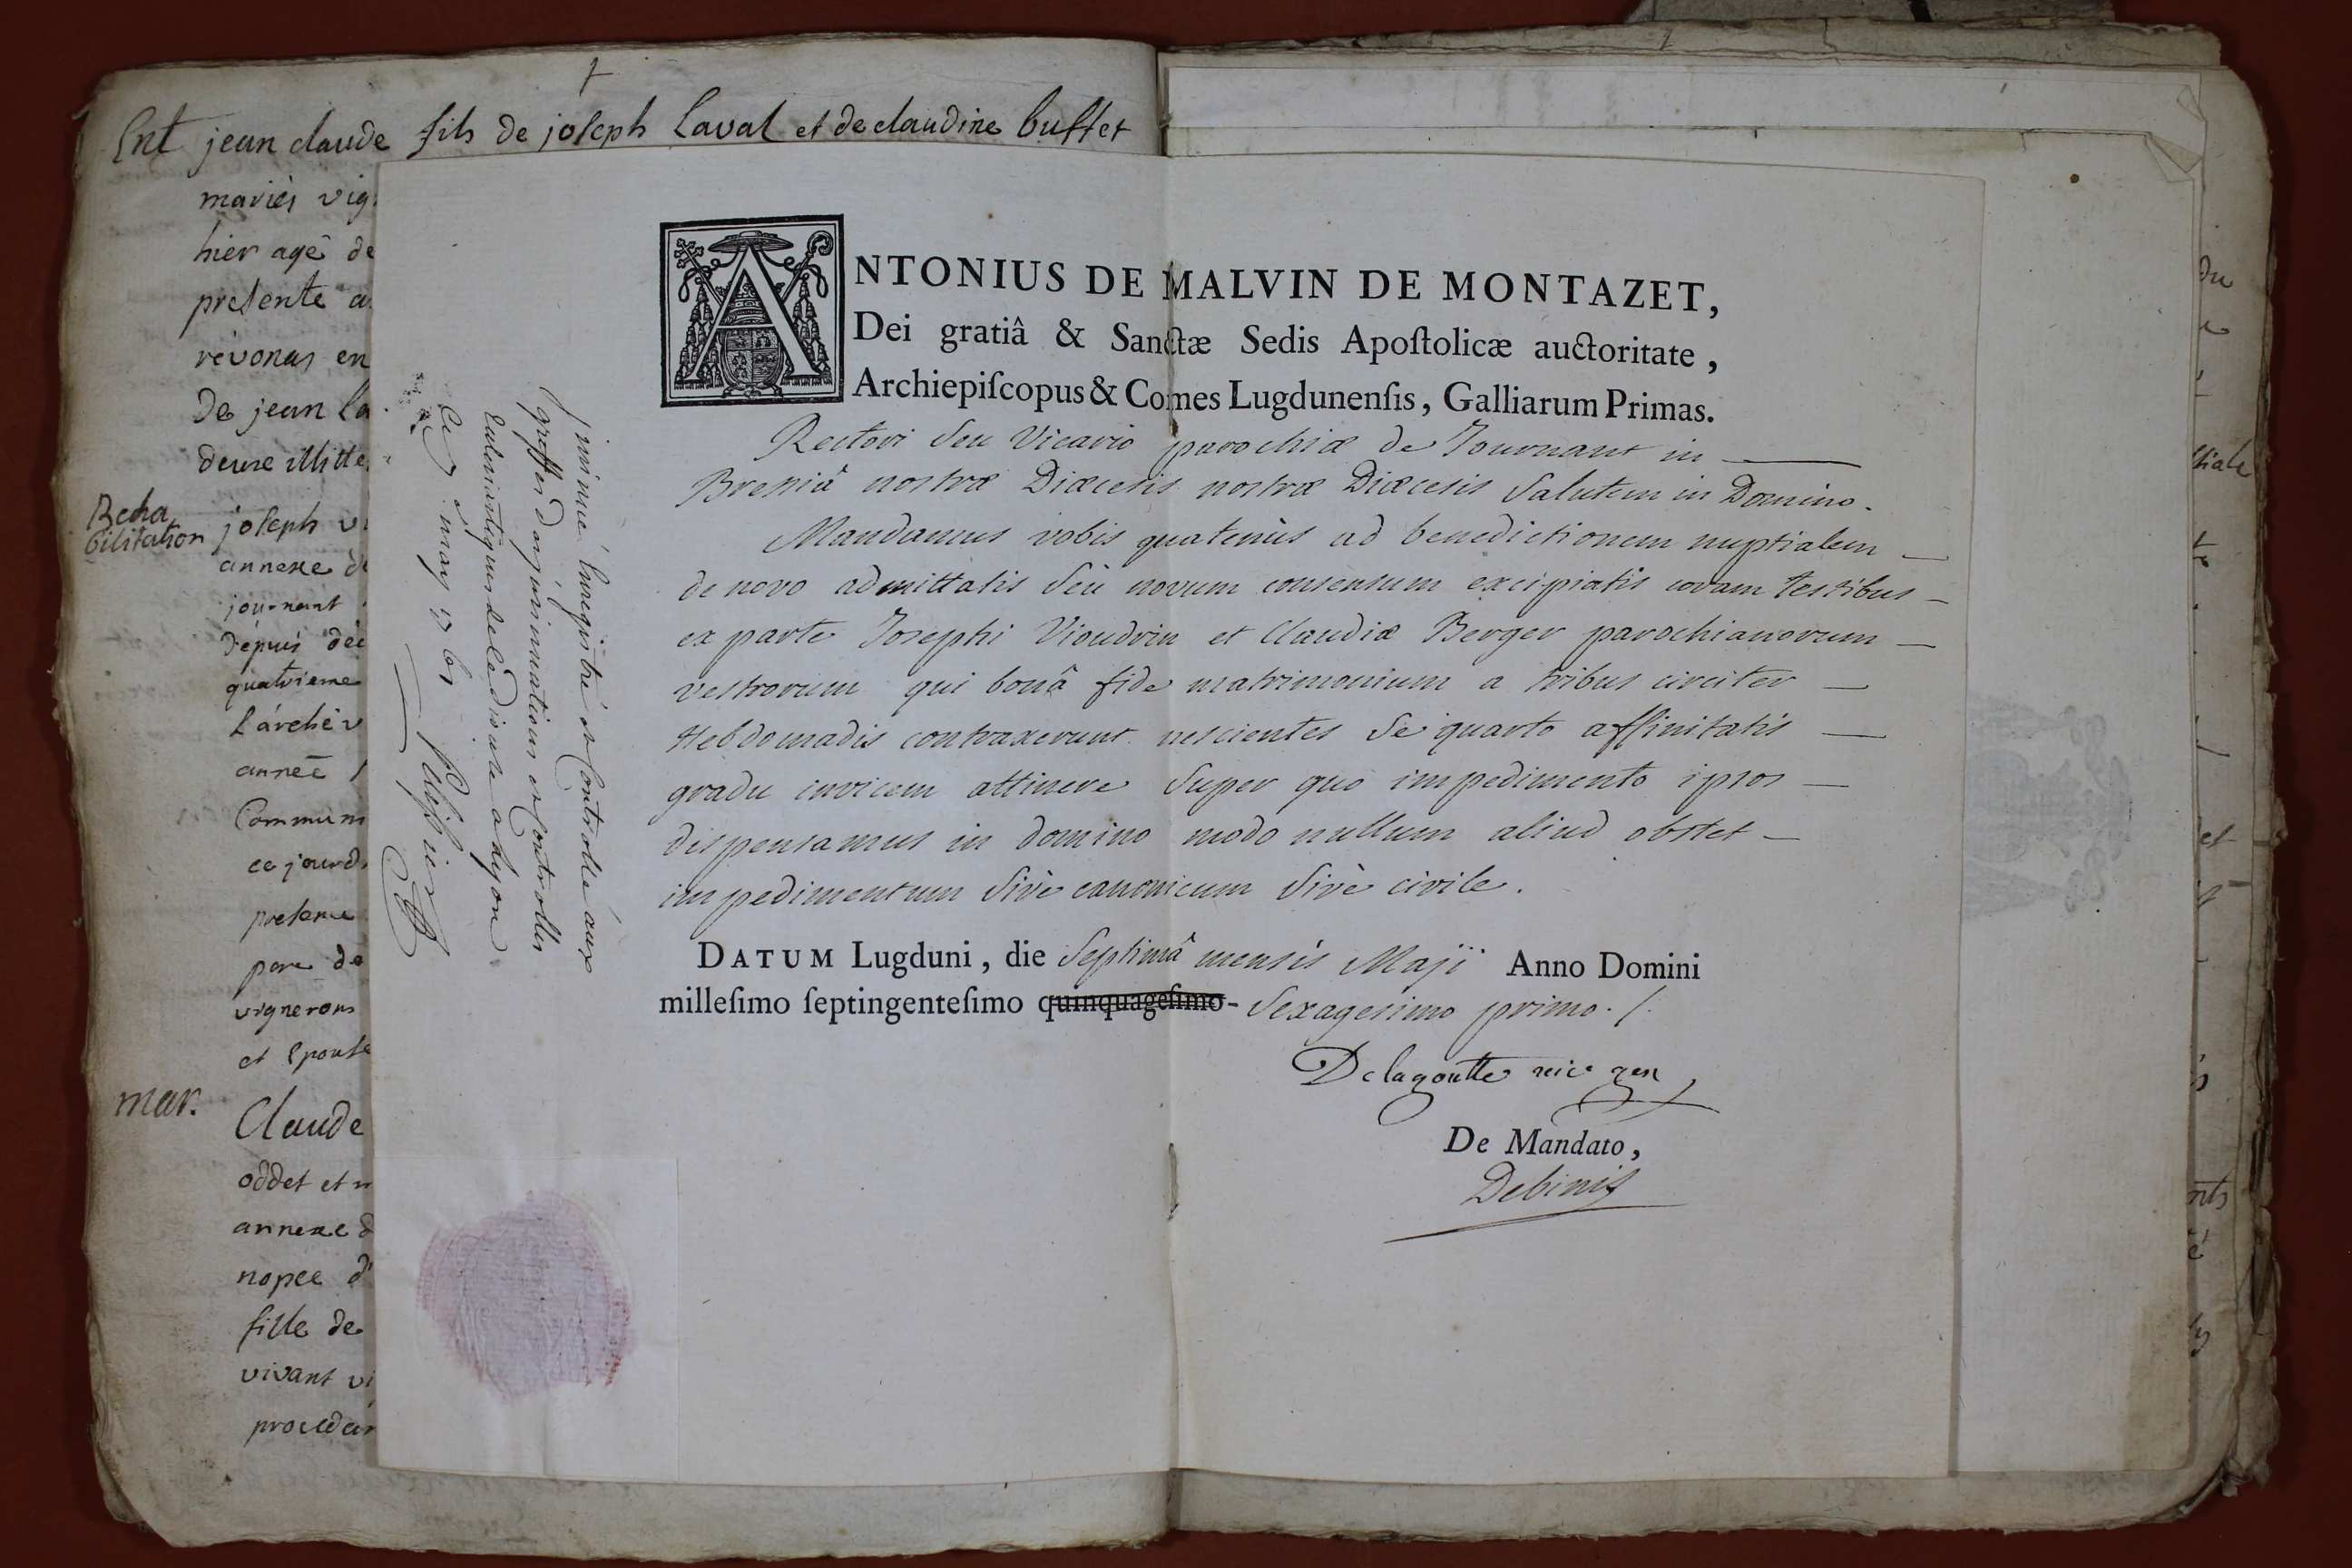 Ent jean claude fils de joseph Laval et de claudine buffet
mariés vig
hier agé de
presente a
revonas en
De jean La
deux illitte
Reha
bilitation
joseph vi
annexe de
journant
dépuis dée
quatrieme
L'archév
année
Commun
ce jourd
presence
pere de
vignerons
et Epouse
mar.
Claude
oddet et
annexe d
nopce d'
fille de
vivant vi
proceder
ANTONIUS DE MALVIN DE MONTAZET,
Dei gratiâ & Sanctæ Sedis Apoſtolicæ auctoritate,
Archiepiſcopus & Comes Lugdunenſis, Galliarum Primas.
Rectori seu Vicario parochiæ de Journant in
Bressiâ nostræ Diœcesis nostræ Diæcesis Salutem in Domino.
Mandamus vobis quatenùs ad benedictionem nuptialem
de novo admittatis seù novum consensum excipiatis coram testibus
ex parte Josephi Vioudrin et Claudiæ Berger parochianorum
vestrorum qui bonâ fide matrimonium a tribus circiter
Hebdomadis contraxerunt nescientes se quarto affinitatis
gradu invicem attinere super quo impedimento ipsos
dispensamus in domino modo nullum aliud obstet
impedimentum sivè canonicum sivè civile.
DATUM Lugduni, die Septimâ mensis Maji Anno Domini
milleſimo ſeptingenteſimo quinquageſimo- Sexagesimo primo. /.
Delagoutte vice gen
De Mandato,
Debinis
insinué Enregistré et Controllé aux
greffes des insinuations et Controlles
Eclesiastiques de ce diocese a Lyon
ce 7e may 1761
du
et
nts